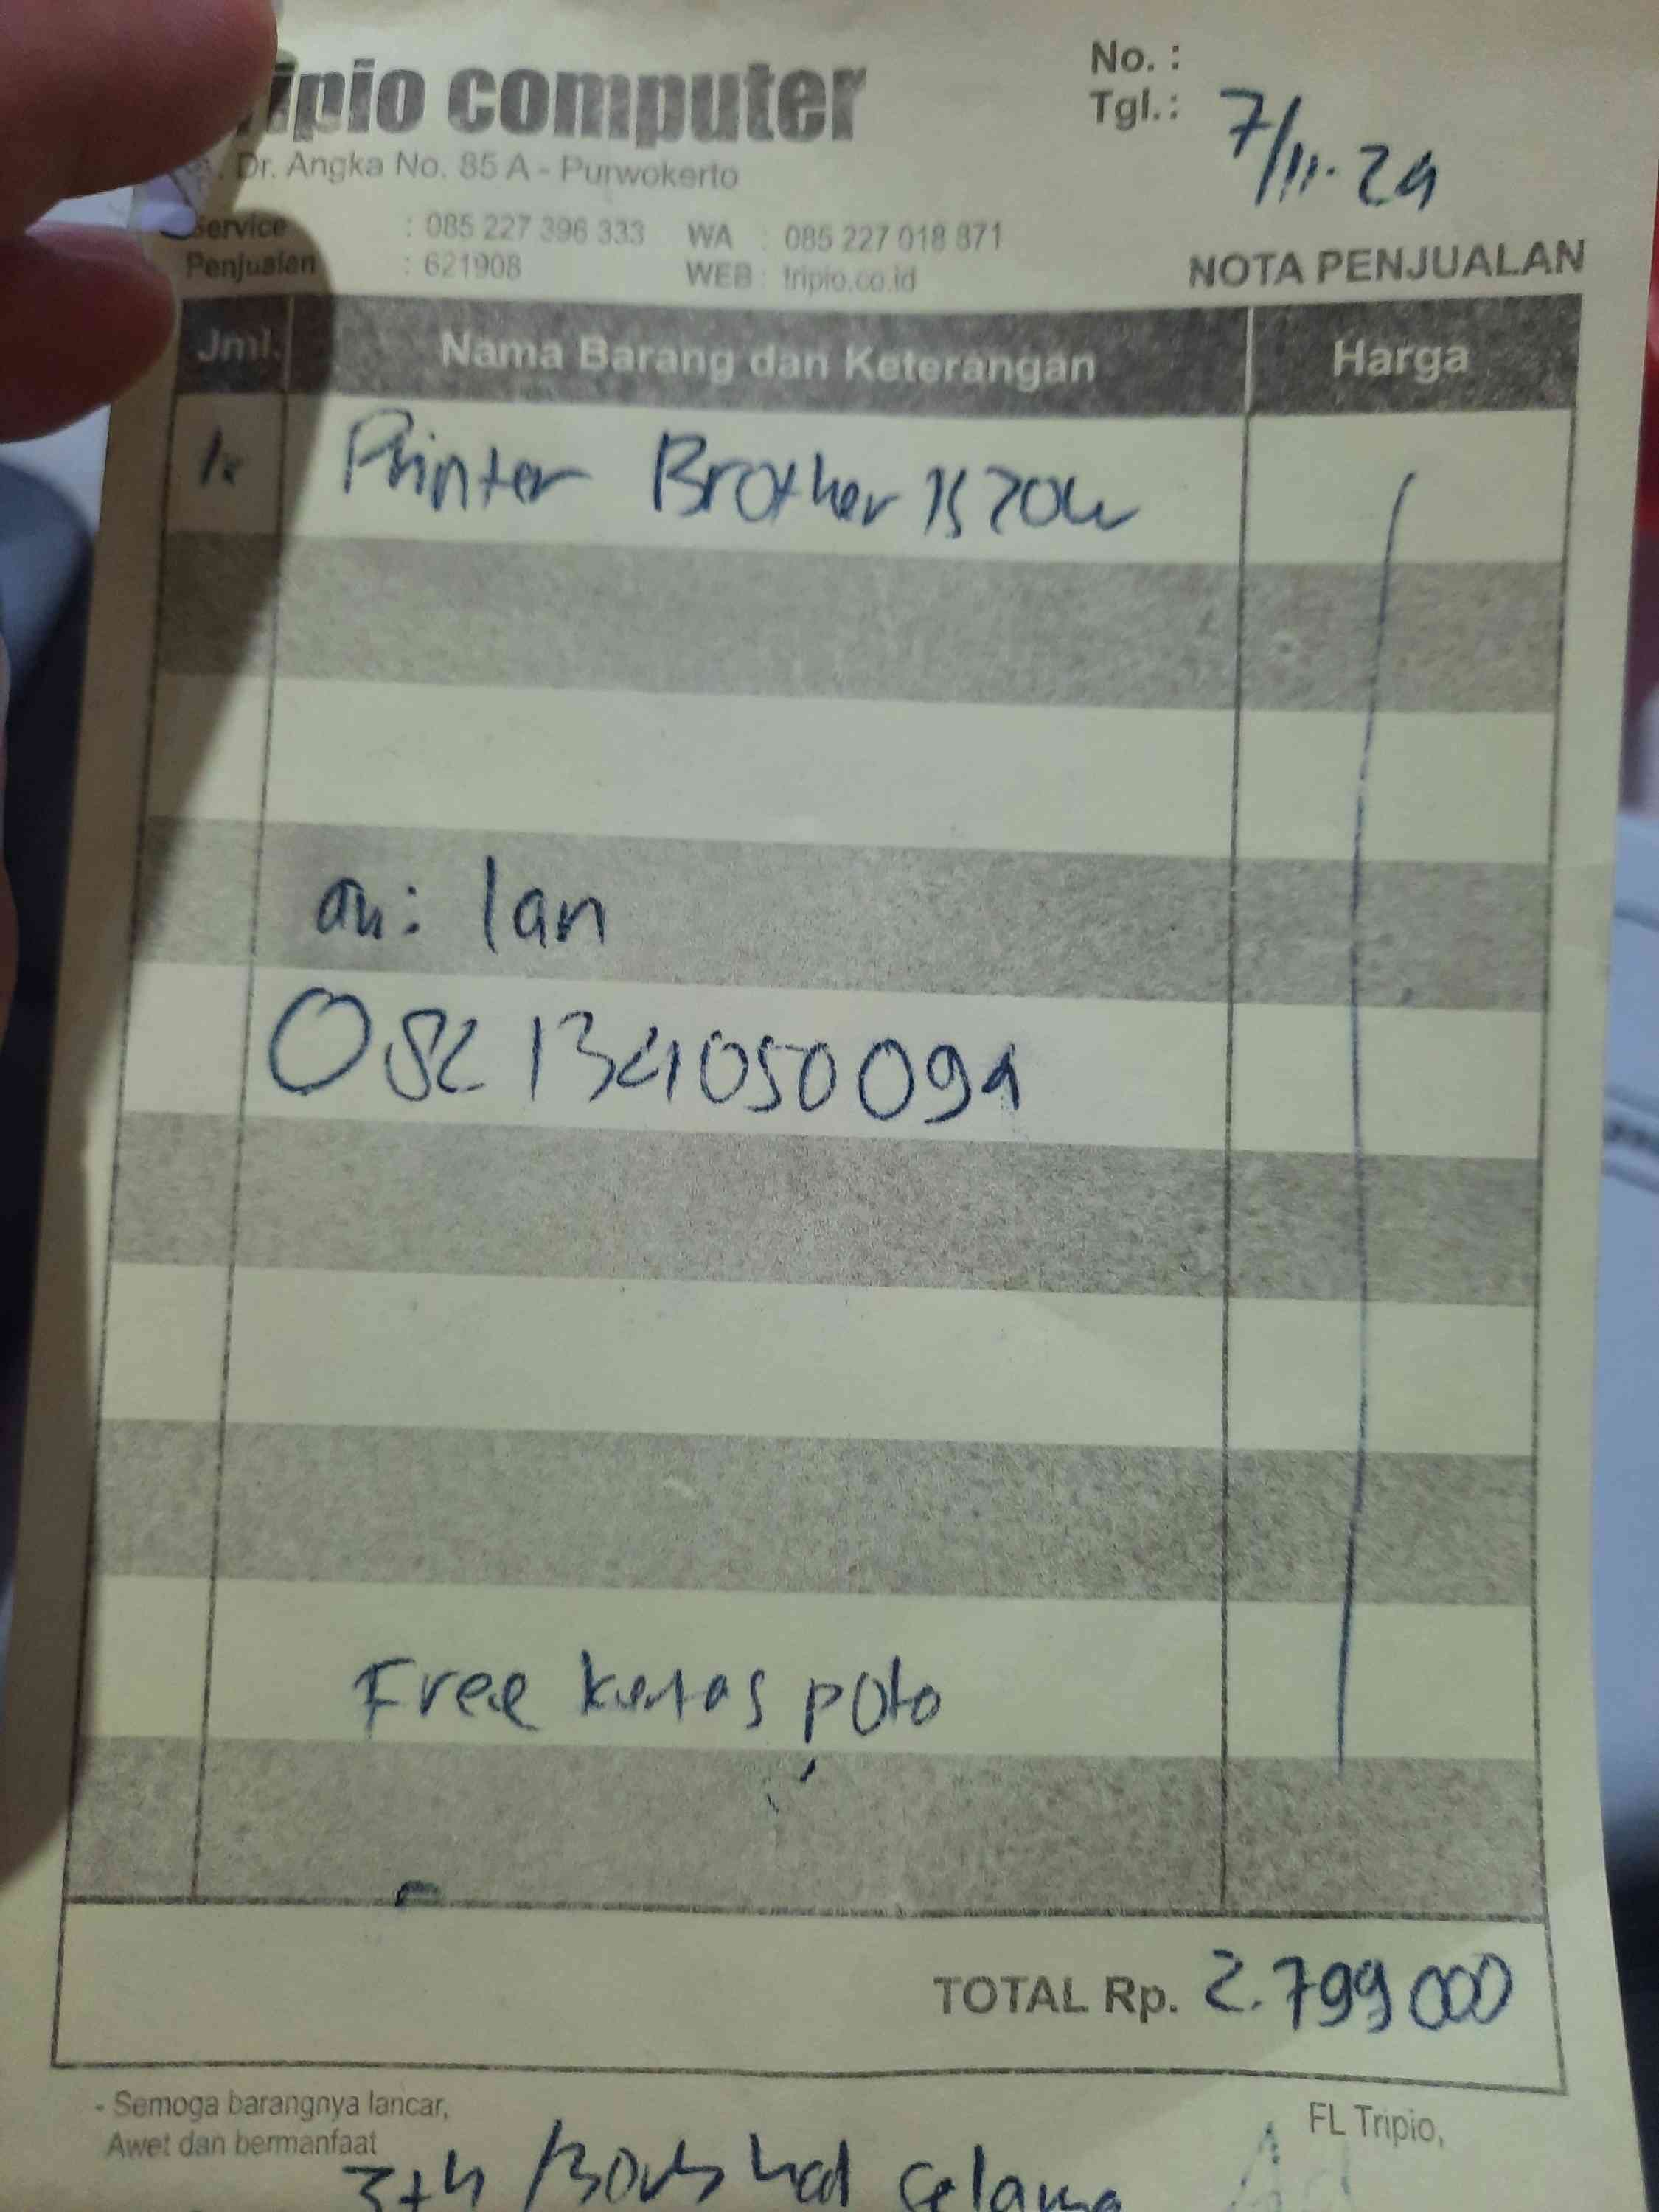 ripio computer
No. :
Tgl.: 7/11-24
. Dr. Angka No. 85 A - Purwokerto
Service : 085 227 396 333 WA : 085 227 018 871
Penjualan : 621908 WEB : tripio.co.id
NOTA PENJUALAN
Jml. Nama Barang dan Keterangan Harga
1x Printer Brother
an: Ian
082134050094
Free kertas poto
TOTAL Rp. 2.799 000
- Semoga barangnya lancar,
Awet dan bermanfaat
FL Tripio,
3th / selama